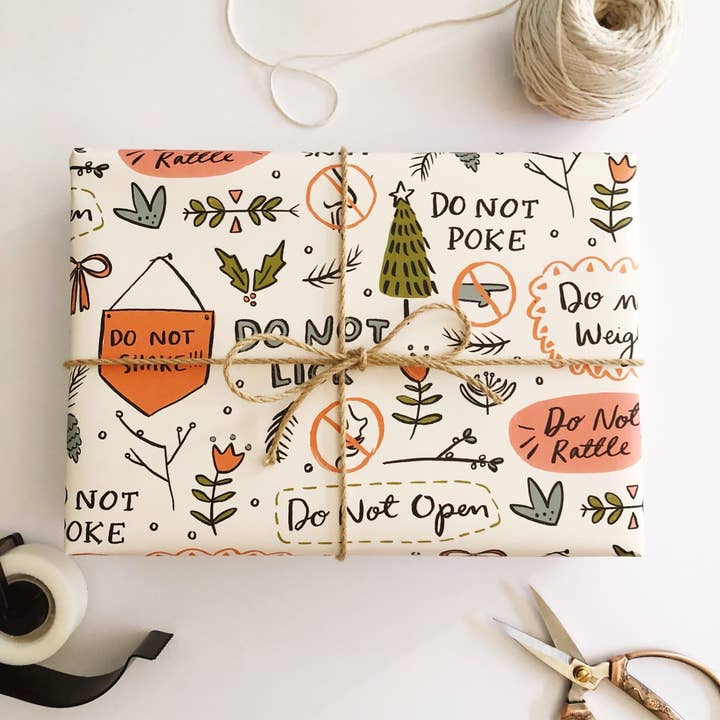 Rattle
DO NOT
POKE
DO NOT
SHAKE!!!
DO NOT
LICK
Do n
Weigh
Do Not
Rattle
NOT
POKE
Do Not Open